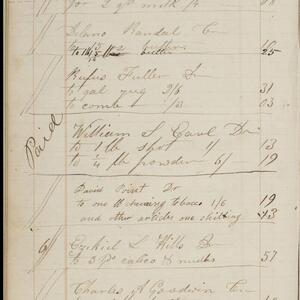 for 2 qt milk /4
Delano Randal Cr
to 1 lb butter 25
Rufus Fuller Dr
to gal jug 2/6 31
to comb 1/3 03
Paid
William S Earl Dr
to 1 lb shot 1/ 13
to 1/4 lb powder 6/ 19
David Point Dr
to one lb chewing tobacco 1/6 19
and other articles one shilling 13
6 Ezekiel L Hills Dr
to 3 ps calico & 57
Charles A Goodwin Cr